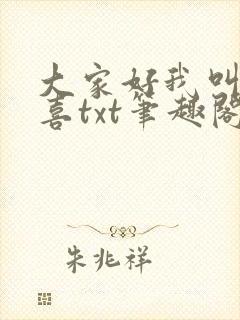 大家好我叫
喜txt笔趣阁
朱兆祥